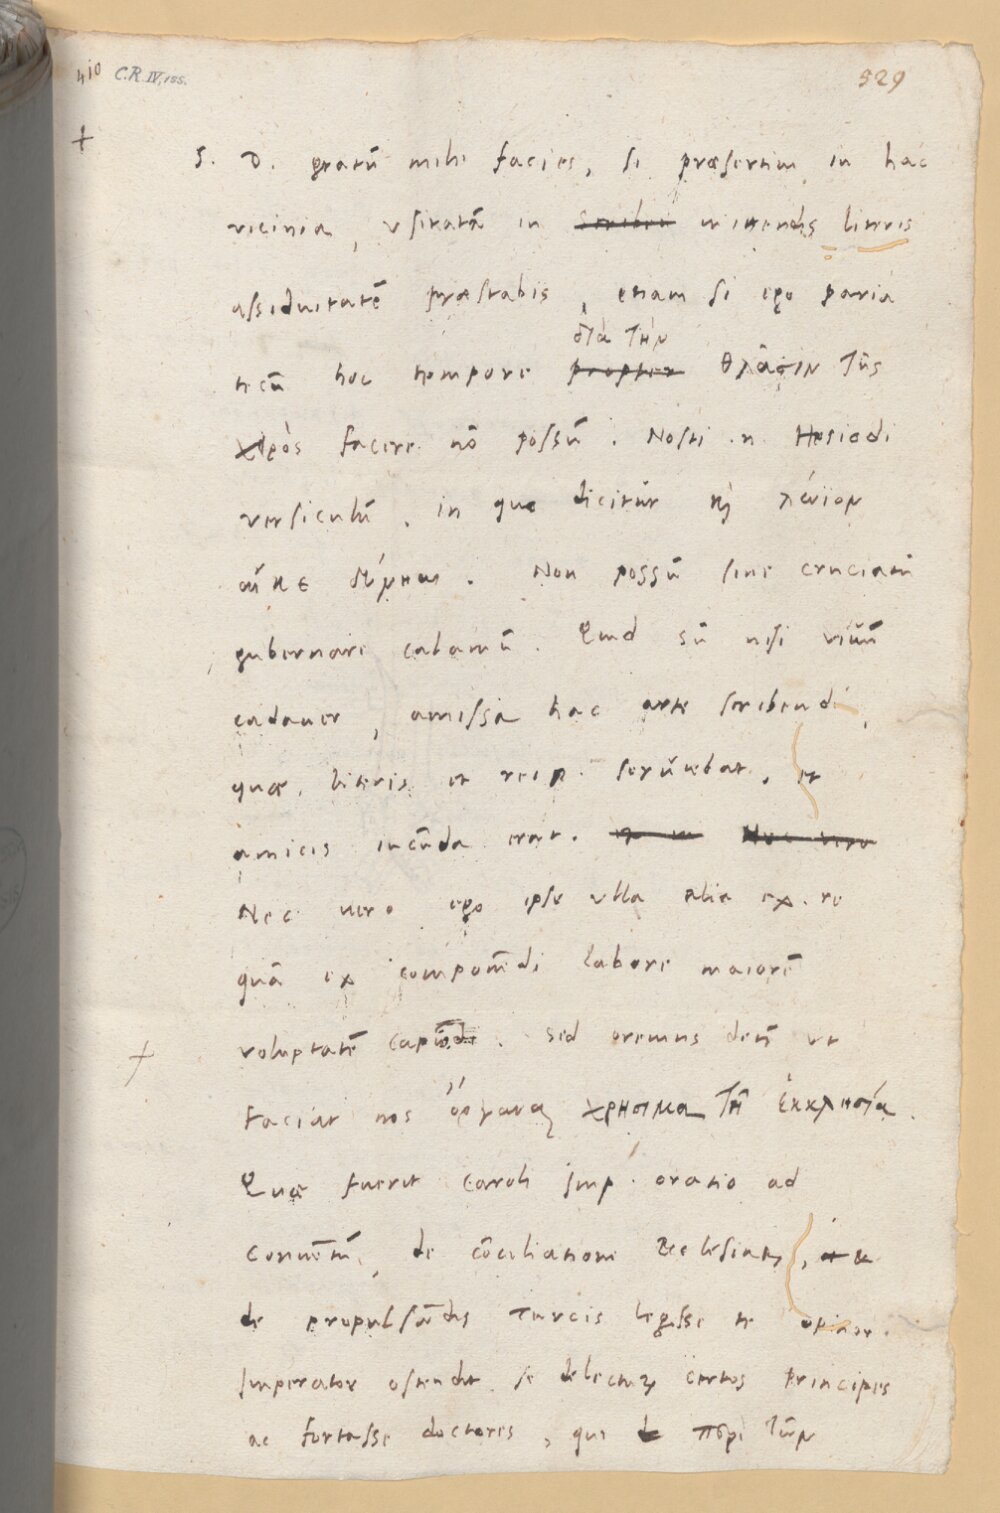 410 C.R. IV, 155. 529
S. D. gratū mihi facies, si præsertim in hac
vicinia, vsitatā in scribẽ mittendis literis
assiduitatē præstabis, etiam si ego paria
διὰ τὴν
tecū hoc tempore propter θλάσιν τῆς
χειρὸς facere nō possū. Nosti .n. Hesiodi
versiculū, in quo dicitur καὶ λώϊον
αἴ κε δύνηαι. Non possū sine cruciatu
gubernare calamū. Quid sū nisi viuū
cadauer, amissa hac arte scribendi,
quæ literis et reip. seruiebat, et
amicis iucūda erat. Nec vero
Nec uero ego ipse vlla alia ex re
quā ex componēdi labore maiorē
voluptatē capio. Sed oremus deū vt
faciat nos ὄργανα χρήσιμα τῇ ἐκκλησίᾳ.
Quæ fuerit Caroli Imp. oratio ad
Conuētū, de cōciliatione Ecclesiarum, et
de propulsādis Turcis legisse te opinor.
Imperator ostendit se delecturum certos principes
ac fortasse doctores, qui de περὶ τῶν